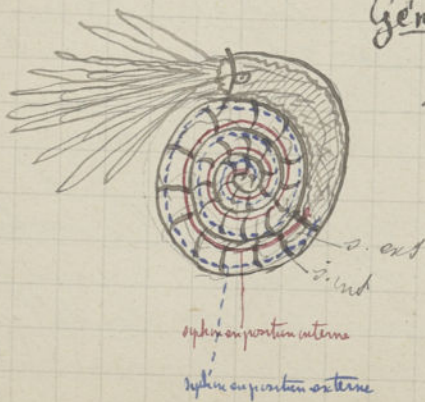 Gén
s. ext
s. int
siphon en position interne
siphon en position externe